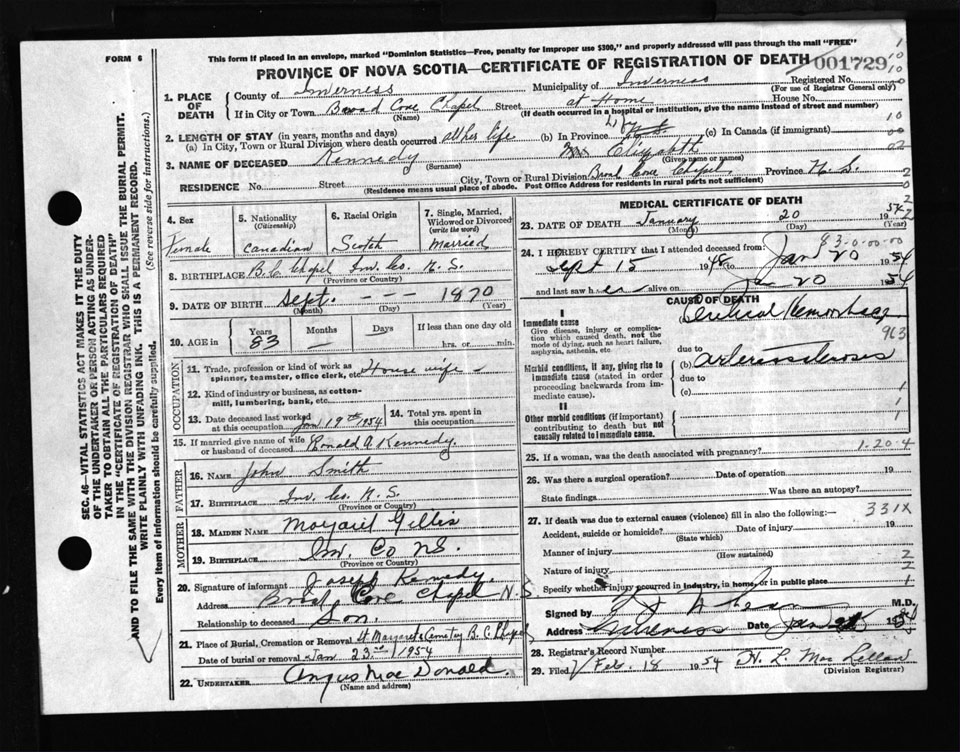 FORM 6
This form if placed in an envelope, marked "Dominion Statistics—Free, penalty for improper use $300," and properly addressed will pass through the mail "FREE"
PROVINCE OF NOVA SCOTIA—CERTIFICATE OF REGISTRATION OF DEATH
001729
1. PLACE OF DEATH
County of Inverness Municipality of Inverness Registered No.
(For use of Registrar General only)
If in City or Town Broad Cove Chapel Street at Home House No.
(Name) (If death occurred in a hospital or institution, give the name instead of street and number)
2. LENGTH OF STAY (in years, months and days)
(a) In City, Town or Rural Division where death occurred all her life (b) In Province N.S. (c) In Canada (if immigrant)
3. NAME OF DECEASED Kennedy Mrs Elizabeth
(Surname) (Given name or names)
RESIDENCE No. Street City, Town or Rural Division Broad Cove Chapel. Province N.S.
(Residence means usual place of abode. Post Office Address for residents in rural parts not sufficient)
4. Sex Female
5. Nationality (Citizenship) Canadian
6. Racial Origin Scotch
7. Single, Married, Widowed or Divorced (write the word) Married
8. BIRTHPLACE B.C. Chapel Inv. Co. N.S.
(Province or Country)
9. DATE OF BIRTH Sept. — — — 1870
(Month) (Day) (Year)
10. AGE in Years 83 Months — Days If less than one day old hrs. or min.
OCCUPATION
11. Trade, profession or kind of work as spinner, teamster, office clerk, etc. House wife –
12. Kind of industry or business, as cotton-mill, lumbering, bank, etc.
13. Date deceased last worked at this occupation Jan 19th 1954
14. Total yrs. spent in this occupation
15. If married give name of wife or husband of deceased Ronald A Kennedy
FATHER
16. NAME John Smith
17. BIRTHPLACE Inv. Co. N.S.
(Province or Country)
MOTHER
18. MAIDEN NAME Margaret Gillis
19. BIRTHPLACE Inv. Co NS.
(Province or Country)
20. Signature of informant Joseph Kennedy.
Address Broad Cove Chapel N.S.
Relationship to deceased Son.
21. Place of Burial, Cremation or Removal St Margarets Cemetery B.C. Chapel
Date of burial or removal Jan 23rd 1954
22. UNDERTAKER Angus MacDonald.
(Name and address)
MEDICAL CERTIFICATE OF DEATH
23. DATE OF DEATH January 20 1954
(Month) (Day)
83-0-00-00
24. I HEREBY CERTIFY that I attended deceased from:
Sept 15 1948 to Jan 20 1954
and last saw her alive on Jan 20 1954
CAUSE OF DEATH
I
Immediate cause
Give disease, injury or complication which caused death, not the mode of dying, such as heart failure, asphyxia, asthenia, etc.
Cerebral Hemorrhage
963
due to
Morbid conditions, if any, giving rise to immediate cause (stated in order proceeding backwards from immediate cause).
(b) arteriosclerosis
due to
(c)
II
Other morbid conditions (if important) contributing to death but not causally related to immediate cause.
1-20-4
25. If a woman, was the death associated with pregnancy?
26. Was there a surgical operation? Date of operation 19
State findings Was there an autopsy?
27. If death was due to external causes (violence) fill in also the following:— 331X
Accident, suicide or homicide? Date of injury 19
(State which)
Manner of injury
(How sustained)
Nature of injury
Specify whether injury occurred in industry, in home, or in public place
Signed by M.D.
Address Inverness Date Jan 19
28. Registrar's Record Number
29. Filed Feb. 18 1954 H. L. MacLellan
(Division Registrar)
SEC. 46—VITAL STATISTICS ACT MAKES IT THE DUTY
OF THE UNDERTAKER OR PERSON ACTING AS UNDER-
TAKER TO OBTAIN ALL THE PARTICULARS REQUIRED
IN THE "CERTIFICATE OF REGISTRATION OF DEATH"
AND TO FILE THE SAME WITH THE DIVISION REGISTRAR WHO SHALL ISSUE THE BURIAL PERMIT.
WRITE PLAINLY WITH UNFADING INK. THIS IS A PERMANENT RECORD.
Every item of information should be carefully supplied. (See reverse side for instructions.)